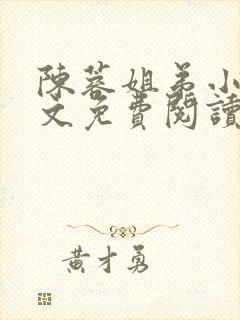 陳蓉姐弟小
文免費閱讀
黃才勇